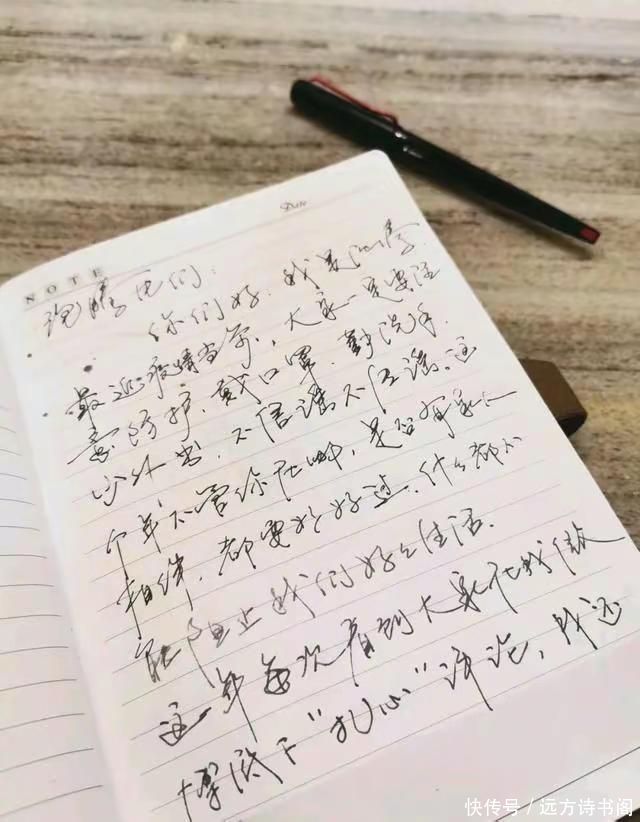 Date
NOTE
沈腾兄们:
你们好! 我是沈腾
最近疫情当前, 大家一定要注
意防护, 戴口罩, 勤洗手,
少外出, 不信谣不传谣。这
个年不管你在哪, 是否有家人
相伴, 都要好好过, 什么都不
能阻止我们好好生活。
这些年每次看到大家在我微
博底下“扎心”评论, 我还
快传号/远方诗书阁